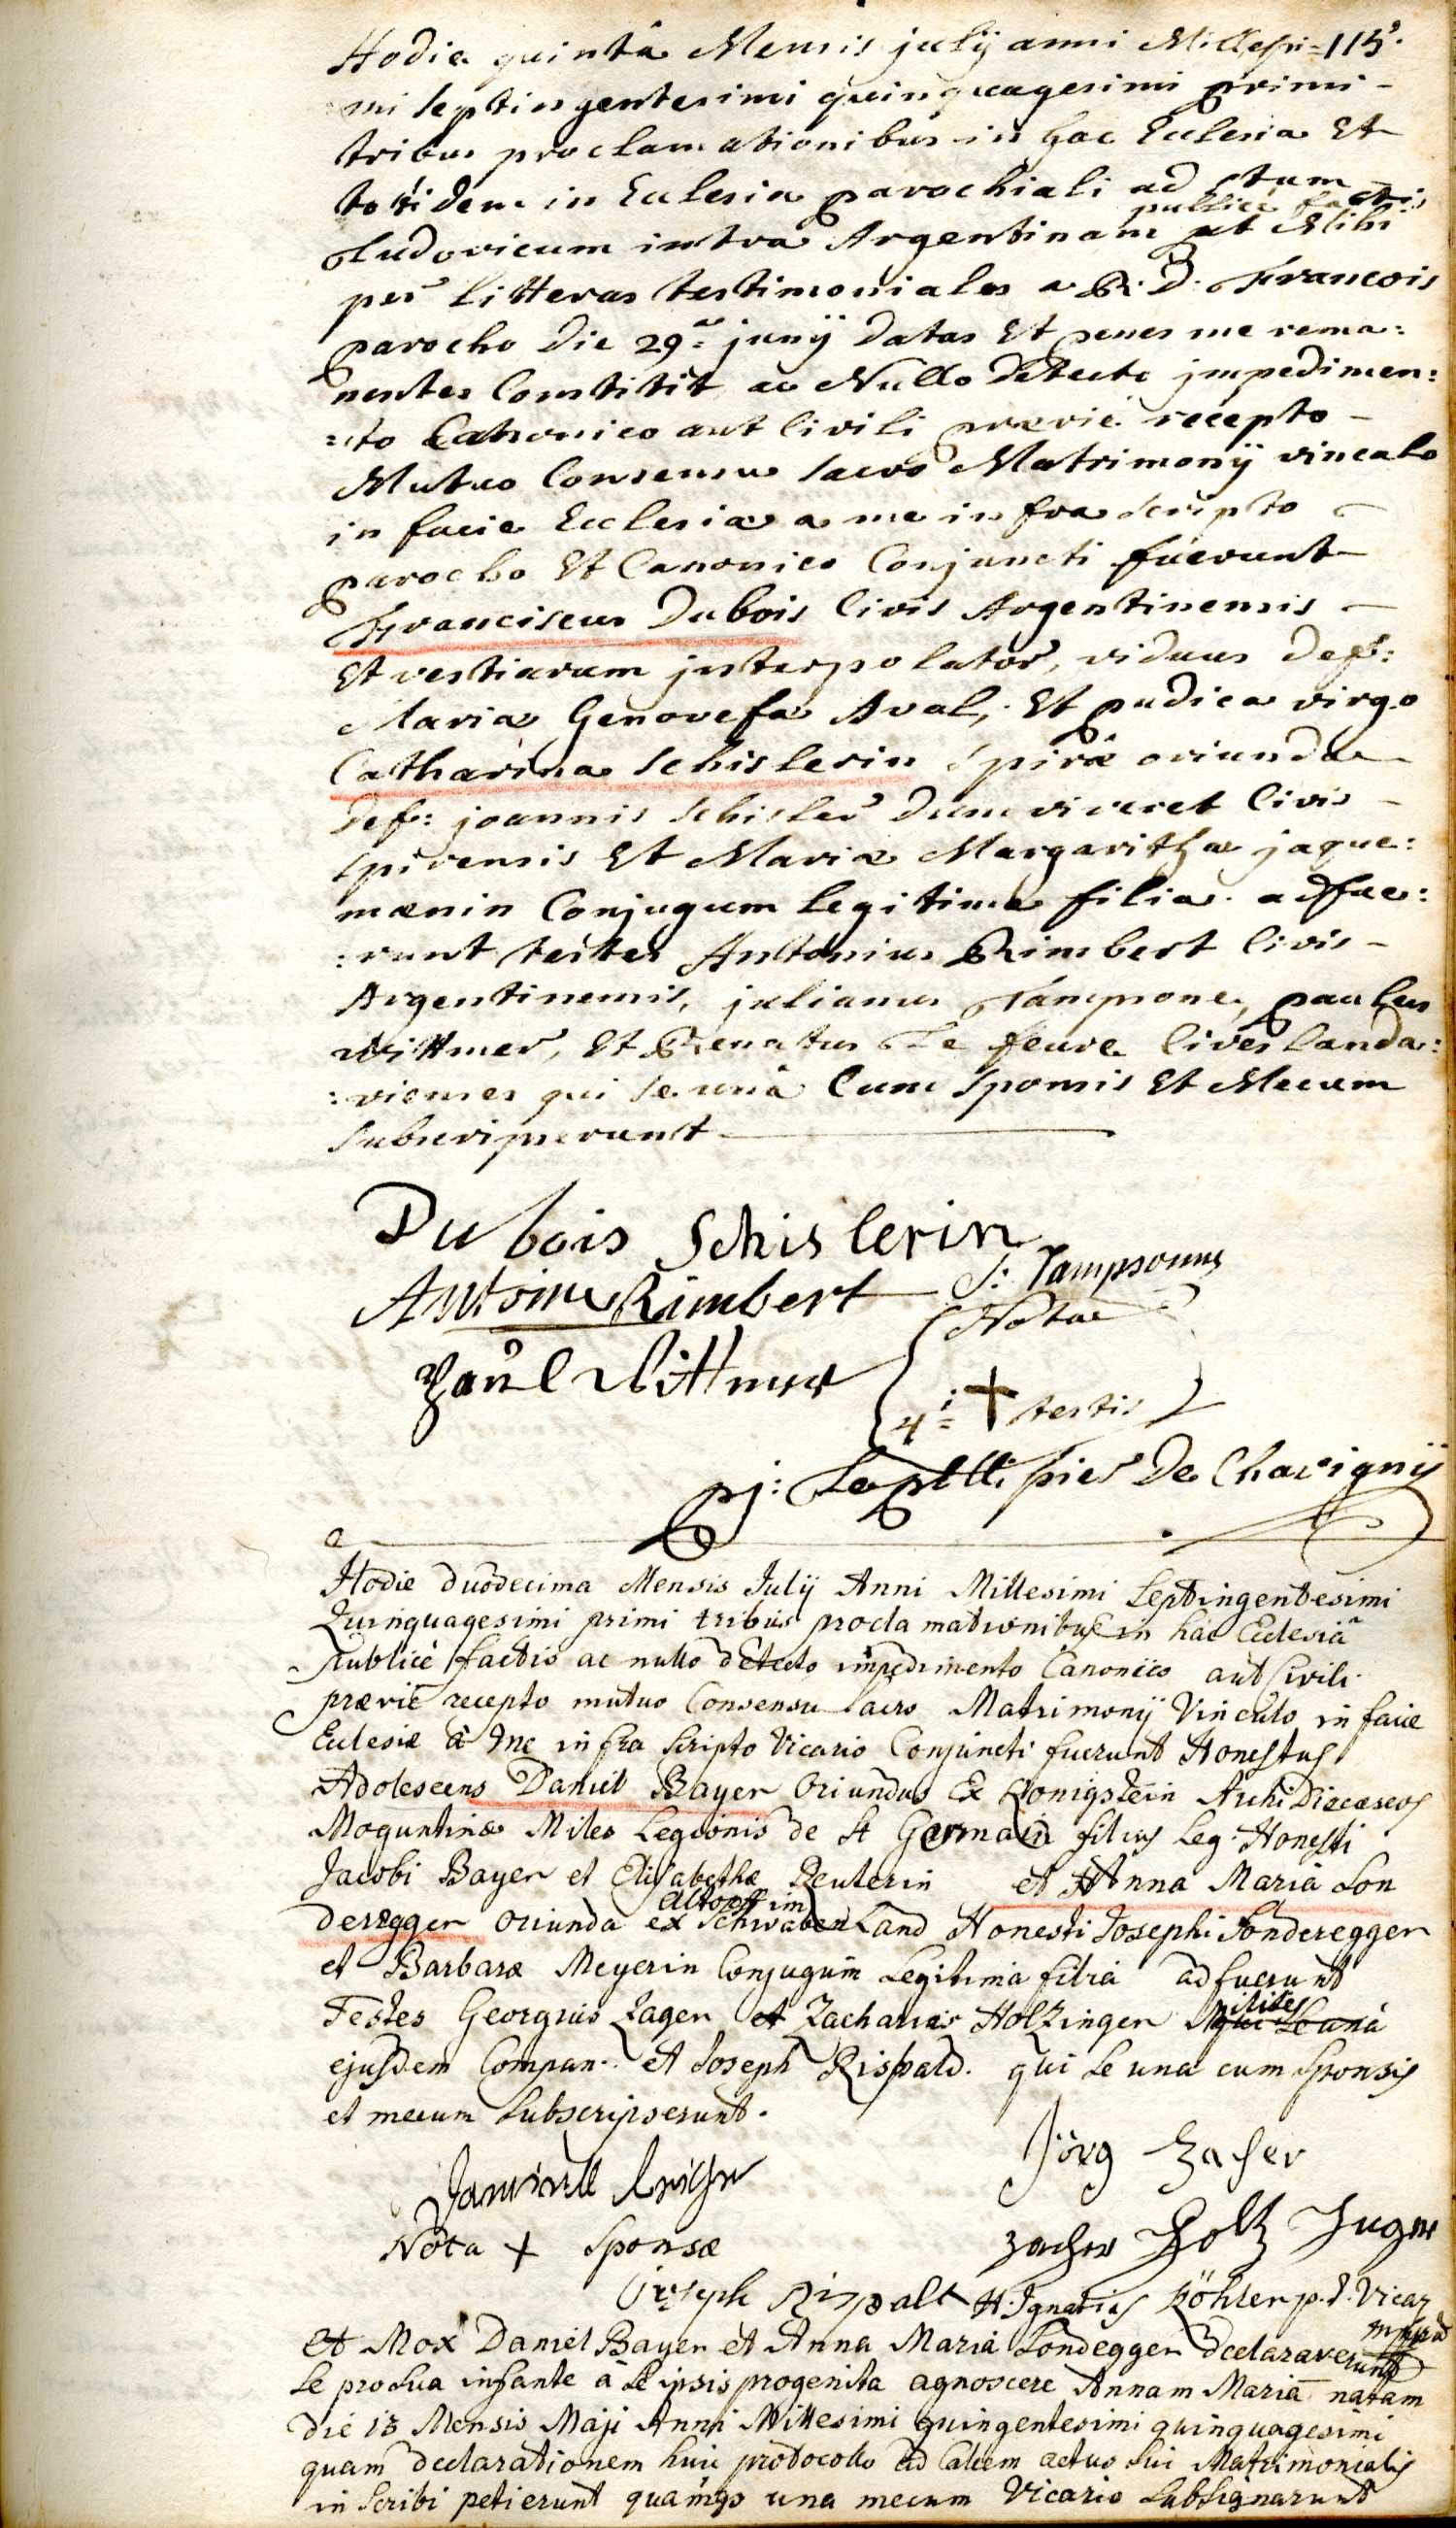 Hodie quintâ Mensis julÿ anni Millesi= 115.
mi septingentesimi quinquagesimi primi –
tribus proclamationibus in hac Ecclesia Et
totidem in Ecclesia parochiali ad Stum –
publicè factis
Ludovicum intra Argentinam ut Mihi
per litteras testimoniales a R: D: Francois
parocho Die 29â junÿ Datas Et penes me rema:
nentes Constitit ac Nullo Detecto jmpedimen:
:to Canonico aut Civili prævie recepto –
Mutuo Consensu sacro Matrimonÿ vinculo
in facie Ecclesiæ a me infra scripto –
parocho Et Canonico Conjuncti fuerunt
Franciscus Dubois Civis Argentinensis –
Et vestiarum jnterpolator, viduus Def:
Mariæ Genovefæ Aval, Et pudica virgo
Catharina Schislerin Spiræ oriunda
Def: joannis Schisler Dum viveret Civis –
Spirensis Et Mariæ Margarithæ jaque:
mænin Conjugum legitima filia. adfue:
:runt testes Antonius Rimbert Civis –
Argentinensis, julianus Tampsone, paulus
Wittmer, Et Renatus Le feure Cives Landa:
:vienses qui se unâ Cum Sponsis Et Mecum
Subscripserunt
Dubois Schislerin
Antoine Rimbert J: Tampsonne
Nota
Paul Wittmer
4i = + testis
pj: Le Pelletier De Chavignÿ
Hodie duodecima Mensis Julÿ Anni Millesimi Septingentesimi
Quinquagesimi primi tribus proclamationibus in hac Ecclesiâ
Publicè factis ac nullo detecto impedimento Canonico aut Civili
prævie recepto mutuo Consensu sacro Matrimonÿ Vinculo in facie
Eclesiæ à me infra scripto Vicario Conjuncti fuerunt Honestus
Adolescens Daniel Bayer Oriundus Ex Konigstein Archi Diœceseos
Moguntinæ Miles Legionis de St Germain filius Leg. Honesti
Jacobi Bayer et Elisabethæ Reuterin et Anna Maria Son
deregger Oriunda ex Schwaben Land Honesti Josephi Sonderegger
et Barbaræ Meyerin Conjugum Legitima filia adfuerunt
Testes Georgius Zager et Zacharias Holtzinger Milites
ejusdem Compan. et Joseph Rispald. qui se una cum Sponsis
et mecum Subscripserunt.
Jörg Zacher
Nota + Sponsæ
Zacher Holtz Jnger
Joseph Rispalt H. Ignatius Köhler p. t. Vicar
Et Mox Daniel Bayer et Anna Maria Sondegger declaraverunt
Se pro sua infante à Se ipsis progenita agnoscere Annam Mariā natam
die 13 Mensis Maji Anni Millesimi quingentesimi quinquagesimi
quam declarationem huic protocollo ad Calcem actus sui Matrimonialis
inscribi petierunt quamqȝ una mecum Vicario Subsignarunt